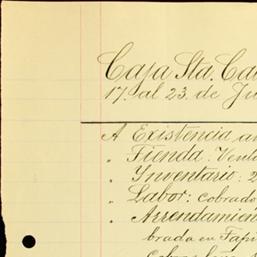 Caja Sta. Ca
17. al 23. de Ju
A Existencia an
" Tienda: Vent
" Inventario: 2
" Labor: cobrado
" Arrendamien
brada en Tapi